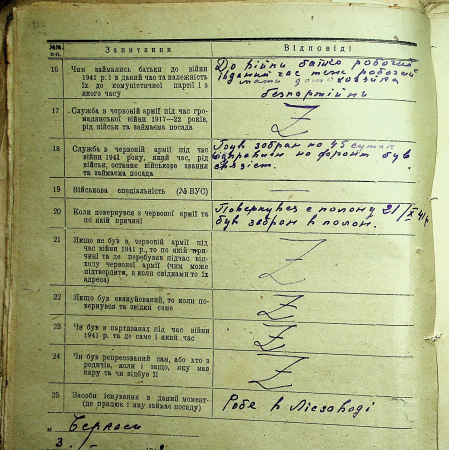 №№ п-п.
Запитання
Відповіді
16
Чим займались батьки до війни
1941 р. і в даний час та належність
їх до комуністичної партії і з
якого часу
До війни батько робочий
час теж робочий
мати домохозяйка
безпартійни
17
Служба в червоній армії під час гро-
мадянської війни 1917—22 років,
рід військ та займаєма посада
Z
18
Служба в червоній армії під час
війни 1941 року, який час, рід
військ, останнє військове звання
та займаєма посада
зобран на 45 суток
на фронт був
связіст.
19
Військова спеціяльність (№ ВУС)
—
20
Коли повернувся з червоної армії та
по якій причині
Повернувся с полону 21/X 41 р.
був зобран в полон.
21
Якщо не був в червоній армії під
час війни 1941 р., то по якій при-
чині та де перебував підчас від-
ходу червоної армії (чим може
підтвердити, а коли свідками то їх
адреса)
Z
22
Якщо був евакуйований, то коли по-
вернувся та звідки саме
Z
23
Чи був в партизанах під час війни
1941 р. та де саме і який час
Z
24
Чи був репресований сам, або хто з
родичів, коли і защо, яку мав
кару та чи відбув її
Z
25
Засоби існування в даний момент-
(де працює і яку займає посаду)
Робе в Лісзаводі
м. Черкаси
3.